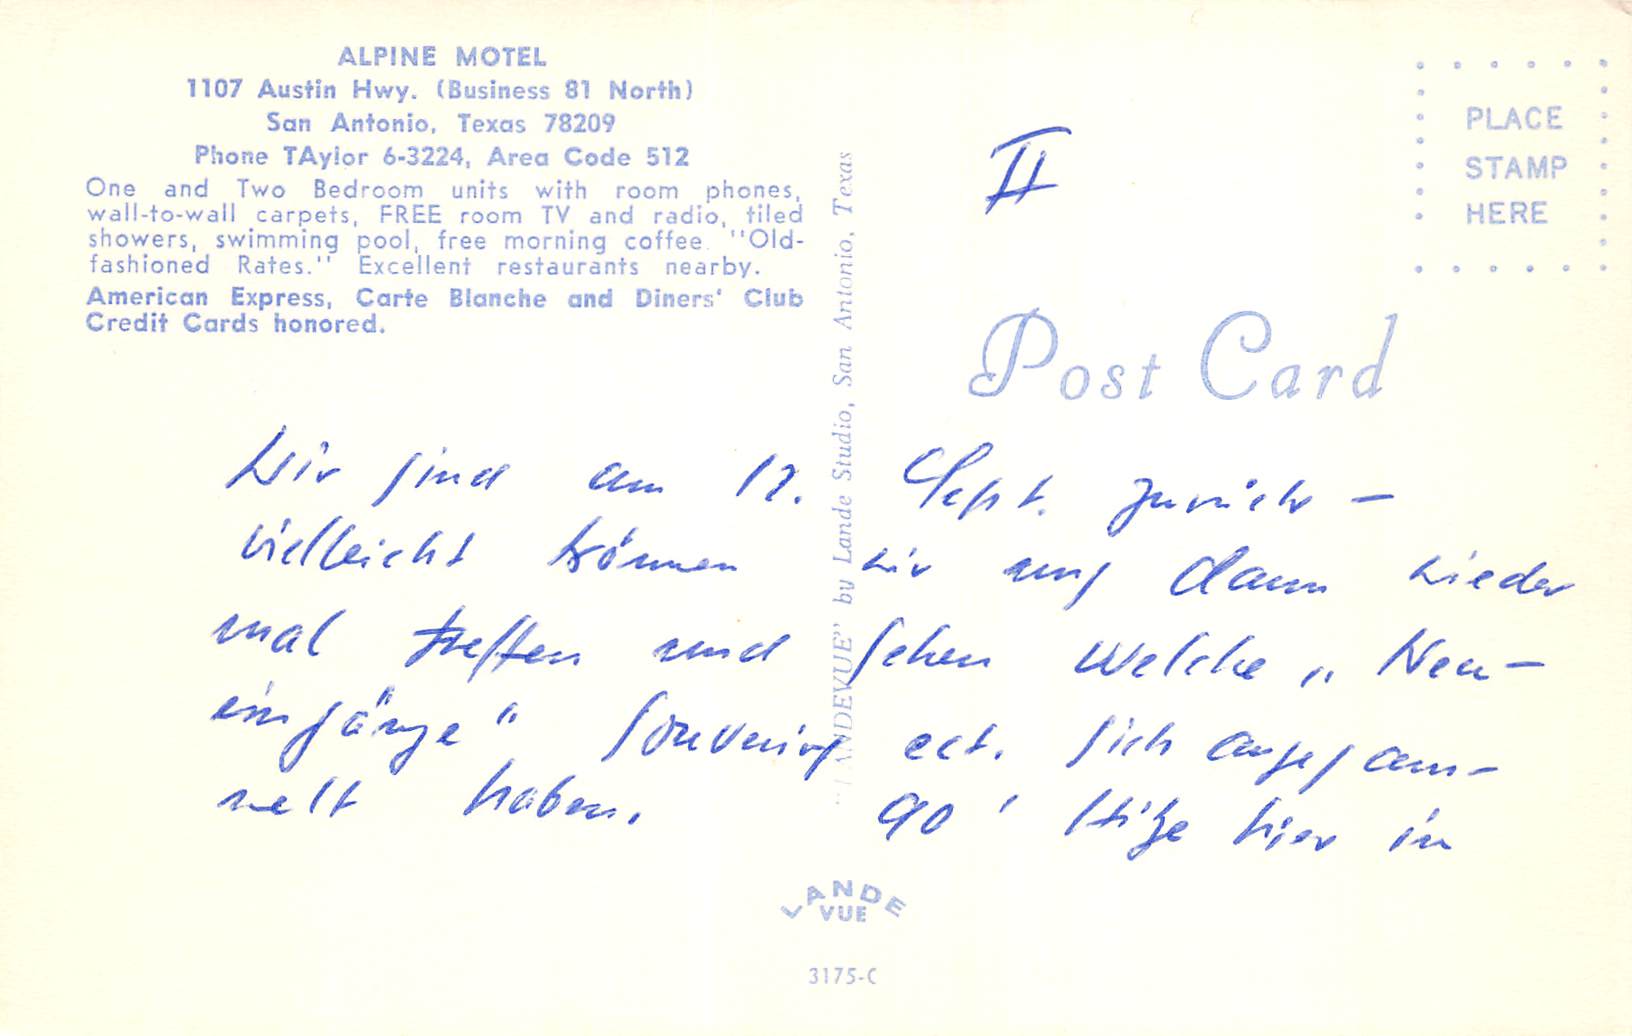 ALPINE MOTEL
1107 Austin Hwy. (Business 81 North)
San Antonio, Texas 78209
Phone TAylor 6-3224, Area Code 512
One and Two Bedroom units with room phones,
wall-to-wall carpets, FREE room TV and radio, tiled
showers, swimming pool, free morning coffee. "Old-
fashioned Rates." Excellent restaurants nearby.
American Express, Carte Blanche and Diners' Club
Credit Cards honored.
"LANDEVUE" by Lande Studio, San Antonio, Texas
II
PLACE
STAMP
HERE
Post Card
Wir sind am 12. Sept. zurück –
vielleicht können wir uns dann wieder
mal treffen und sehen welche „Neu-
eingänge“ Souvenirs ect. sich angesam-
melt haben. 90' Hitze hier in
LANDE
VUE
3175-C